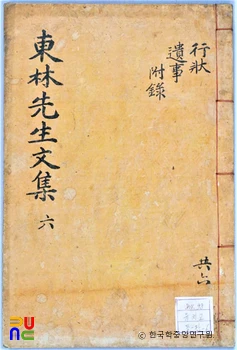 東林先生文集 六
行狀
遺事
附錄
共六
© 한국학중앙연구원